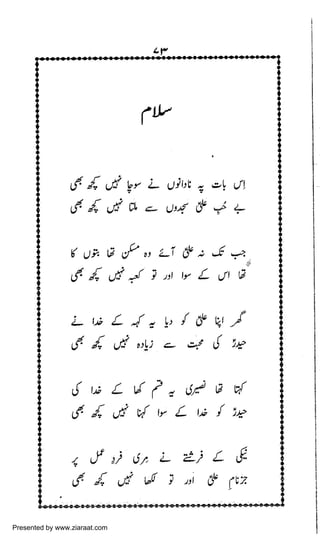 ۷۳
سلام
اس بات پہ نادانوں نے سوچا نہیں کچھ بھی
بے حُبِ علیؑ سجدوں سے ملتا نہیں کچھ بھی
جب تک نہ علیؑ آئے وہ مسکن تھا بتوں کا
تھا اس کے سوا اور تو کعبہ نہیں کچھ بھی
گھر اپنا علیؑ کو دیا یہ کہہ کے خدا نے
حیدرؑ کی محبت سے زیادہ نہیں کچھ بھی
کہتا تھا نصیری یہ قسم کھا کے خدا کی
حیدرؑ کو خدا کے سوا کہنا نہیں کچھ بھی
نیکی کے فرشتے نے مری فردِ عمل پر
جز نامِ علیؑ اور تو لکھا نہیں کچھ بھی
Presented by www.ziaraat.com